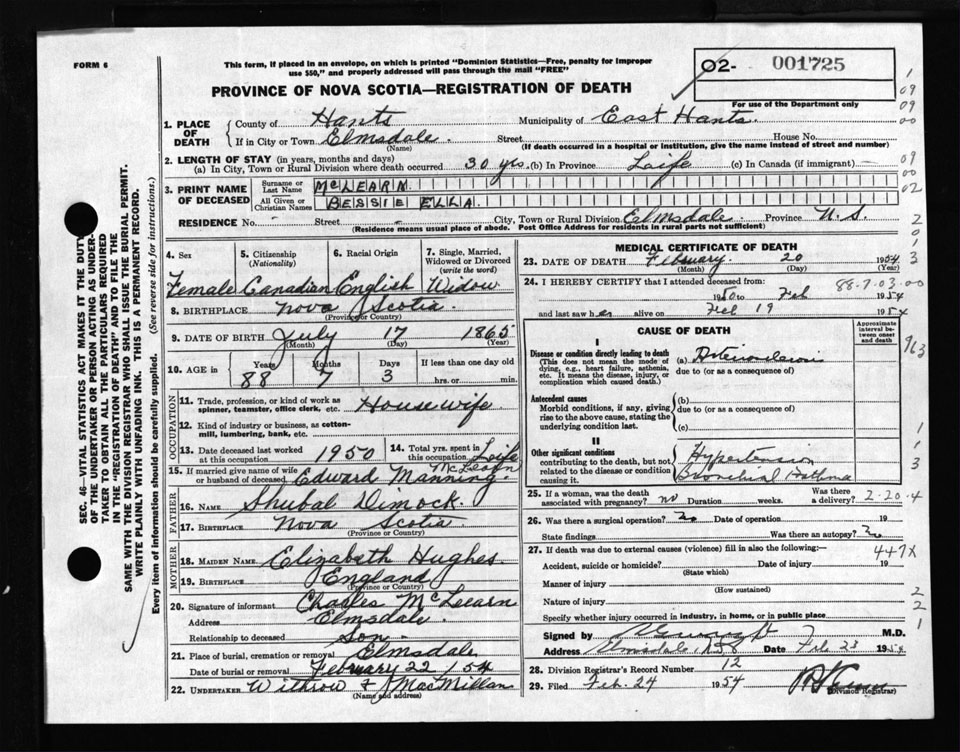 FORM 6
This form, if placed in an envelope, on which is printed "Dominion Statistics—Free, penalty for improper
use $50," and properly addressed will pass through the mail "FREE"
PROVINCE OF NOVA SCOTIA—REGISTRATION OF DEATH
02- 001725
For use of the Department only
1. PLACE OF DEATH County of Hants Municipality of East Hants.
If in City or Town Elmsdale. Street House No.
(Name) (If death occurred in a hospital or institution, give the name instead of street and number)
2. LENGTH OF STAY (in years, months and days)
(a) In City, Town or Rural Division where death occurred 30 yrs. (b) In Province Life (c) In Canada (if immigrant) —
3. PRINT NAME OF DECEASED
Surname or Last Name McLEARN.
All Given or Christian Names BESSIE ELLA.
RESIDENCE No. - Street - City, Town or Rural Division Elmsdale. Province N.S.
(Residence means usual place of abode. Post Office Address for residents in rural parts not sufficient)
4. Sex Female
5. Citizenship (Nationality) Canadian
6. Racial Origin English
7. Single, Married, Widowed or Divorced (write the word) Widow
8. BIRTHPLACE Nova Scotia
(Province or Country)
9. DATE OF BIRTH July 17 1865
(Month) (Day) (Year)
10. AGE in Years 88 Months 7 Days 3 If less than one day old
hrs. or min.
OCCUPATION
11. Trade, profession, or kind of work as
spinner, teamster, office clerk, etc. Housewife
12. Kind of industry or business, as cotton-
mill, lumbering, bank, etc.
13. Date deceased last worked
at this occupation 1950
14. Total yrs. spent in
this occupation Life
15. If married give name of wife
or husband of deceased Edward Manning McLearn
FATHER
16. NAME Shubal Dimock.
17. BIRTHPLACE Nova Scotia.
(Province or Country)
MOTHER
18. MAIDEN NAME Elizabeth Hughes.
19. BIRTHPLACE England
(Province or Country)
20. Signature of informant Charles McLearn
Address Elmsdale.
Relationship to deceased Son.
21. Place of burial, cremation or removal Elmsdale
Date of burial or removal February 22 / 54
22. UNDERTAKER Withrow & MacMillan
(Name and address)
MEDICAL CERTIFICATE OF DEATH
23. DATE OF DEATH February 20 1954
(Month) (Day) (Year)
24. I HEREBY CERTIFY that I attended deceased from:
88-7-03-00
1950 to Feb 1954
and last saw her alive on Feb 19 1954
CAUSE OF DEATH
Approximate interval between onset and death
I
Disease or condition directly leading to death
(This does not mean the mode of
dying, e.g., heart failure, asthenia,
etc. It means the disease, injury, or
complication which caused death.)
(a)
due to (or as a consequence of)
Antecedent causes
Morbid conditions, if any, giving
rise to the above cause, stating the
underlying condition last.
(b)
due to (or as a consequence of)
(c)
II
Other significant conditions
contributing to the death, but not
related to the disease or condition
causing it.
Hypertension
Bronchial Asthma
25. If a woman, was the death
associated with pregnancy? no Duration weeks. Was there a delivery?
2-20-4
26. Was there a surgical operation? no Date of operation 19
State findings Was there an autopsy? no
27. If death was due to external causes (violence) fill in also the following:—
447X
Accident, suicide or homicide? Date of injury 19
(State which)
Manner of injury
(How sustained)
Nature of injury
Specify whether injury occurred in industry, in home, or in public place
Signed by M.D.
Address Elmsdale, NS Date Feb 23 1954
28. Division Registrar's Record Number 12
29. Filed Feb. 24 1954
(Division Registrar)
SEC. 46—VITAL STATISTICS ACT MAKES IT THE DUTY
OF THE UNDERTAKER OR PERSON ACTING AS UNDER-
TAKER TO OBTAIN ALL THE PARTICULARS REQUIRED
IN THE "REGISTRATION OF DEATH" AND TO FILE THE
SAME WITH THE DIVISION REGISTRAR WHO SHALL ISSUE THE BURIAL PERMIT.
WRITE PLAINLY WITH UNFADING INK. THIS IS A PERMANENT RECORD.
Every item of information should be carefully supplied. (See reverse side for instructions.)
1
09
09
00
09
00
02
2
0
3
963
1
1
3
2
2
1